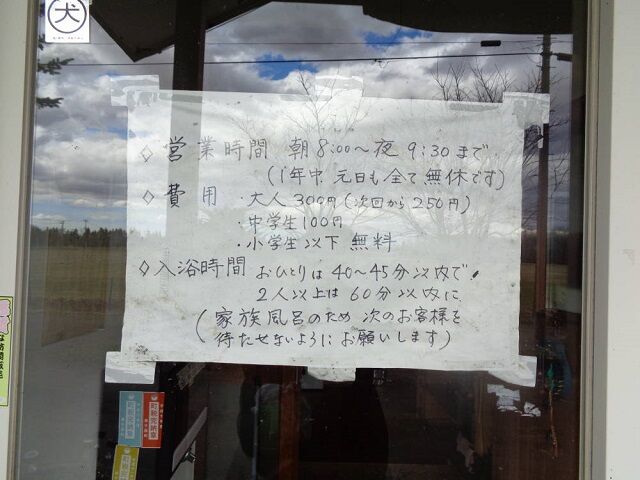 犬
◇営業時間 朝8:00～夜9:30まで
(1年中、元日も全て無休です)
◇費用 ・大人300円(次回から250円)
・中学生100円
・小学生以下 無料
◇入浴時間 おひとりは40～45分以内で、
2人以上は60分以内に
(家族風呂のため次のお客様を
待たせないようにお願いします)